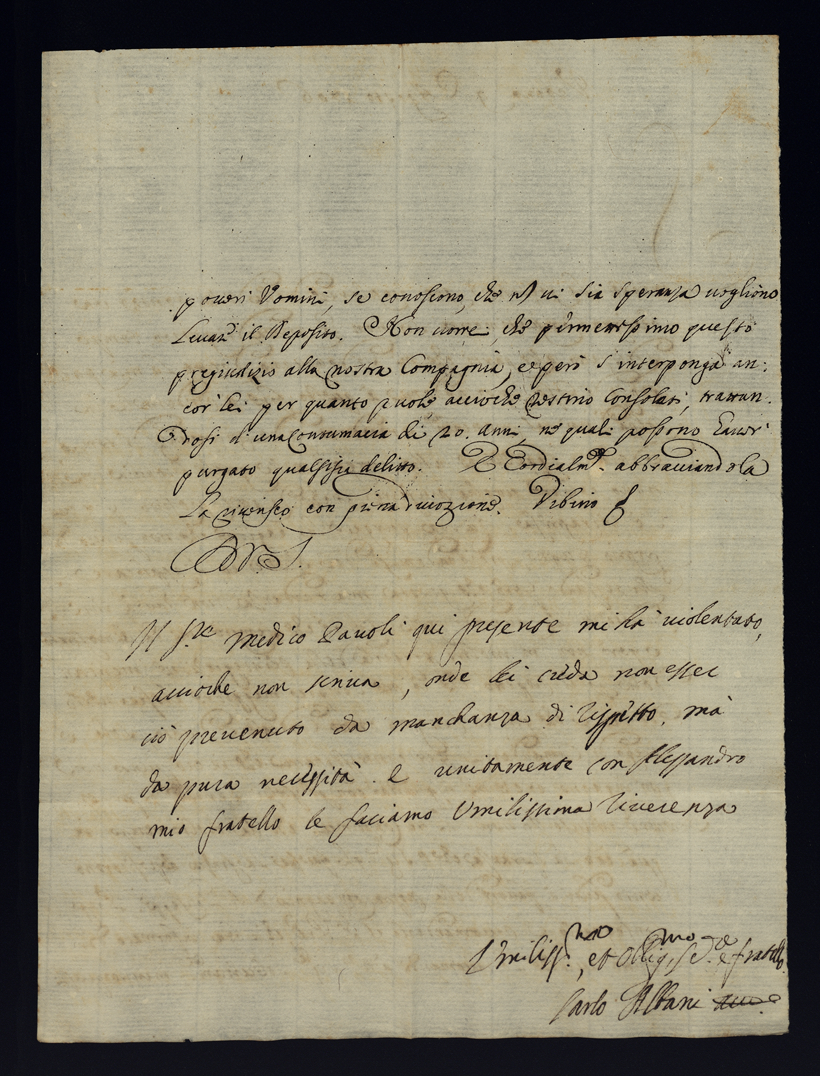 poveri Vomini, se conoscono, che ñ vi sia speranza vogliono
Levare il Deposito. Non vorrei, che permettessimo questo
pregiudizio alla nostra Compagnia, e però s'interponga an:
cor lei per quanto puole accioche restino Consolati, trattan:
dosi d'una Contumacia di 20. anni, ne quali possono haver
purgato qualsisia delitto. E Cordialm.te abbracciandola
La riverisco con piena divozione. Vrbino
Il S.re Medico Pauoli qui presente mi ha violentato,
accioche non scriva, onde lei creda non esser
ciò prevenuto da manchanza di rispetto, mà
da pura necessità. e unitamente con Alessandro
mio fratello le faciamo Vmilissima riverenza
Vmiliss.mo, et Oblig.mo Se.re e fratello
Carlo Albani